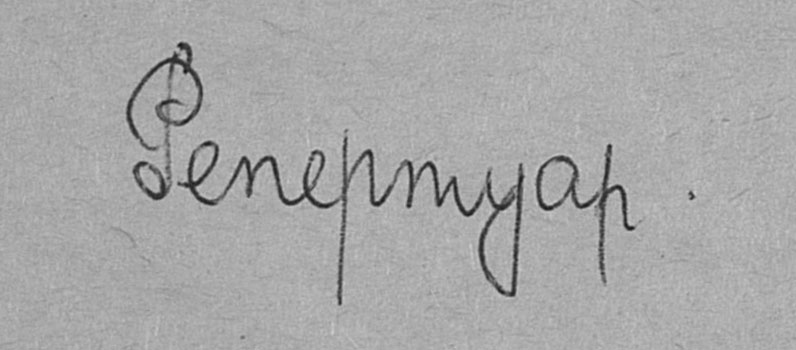 Репертуар.